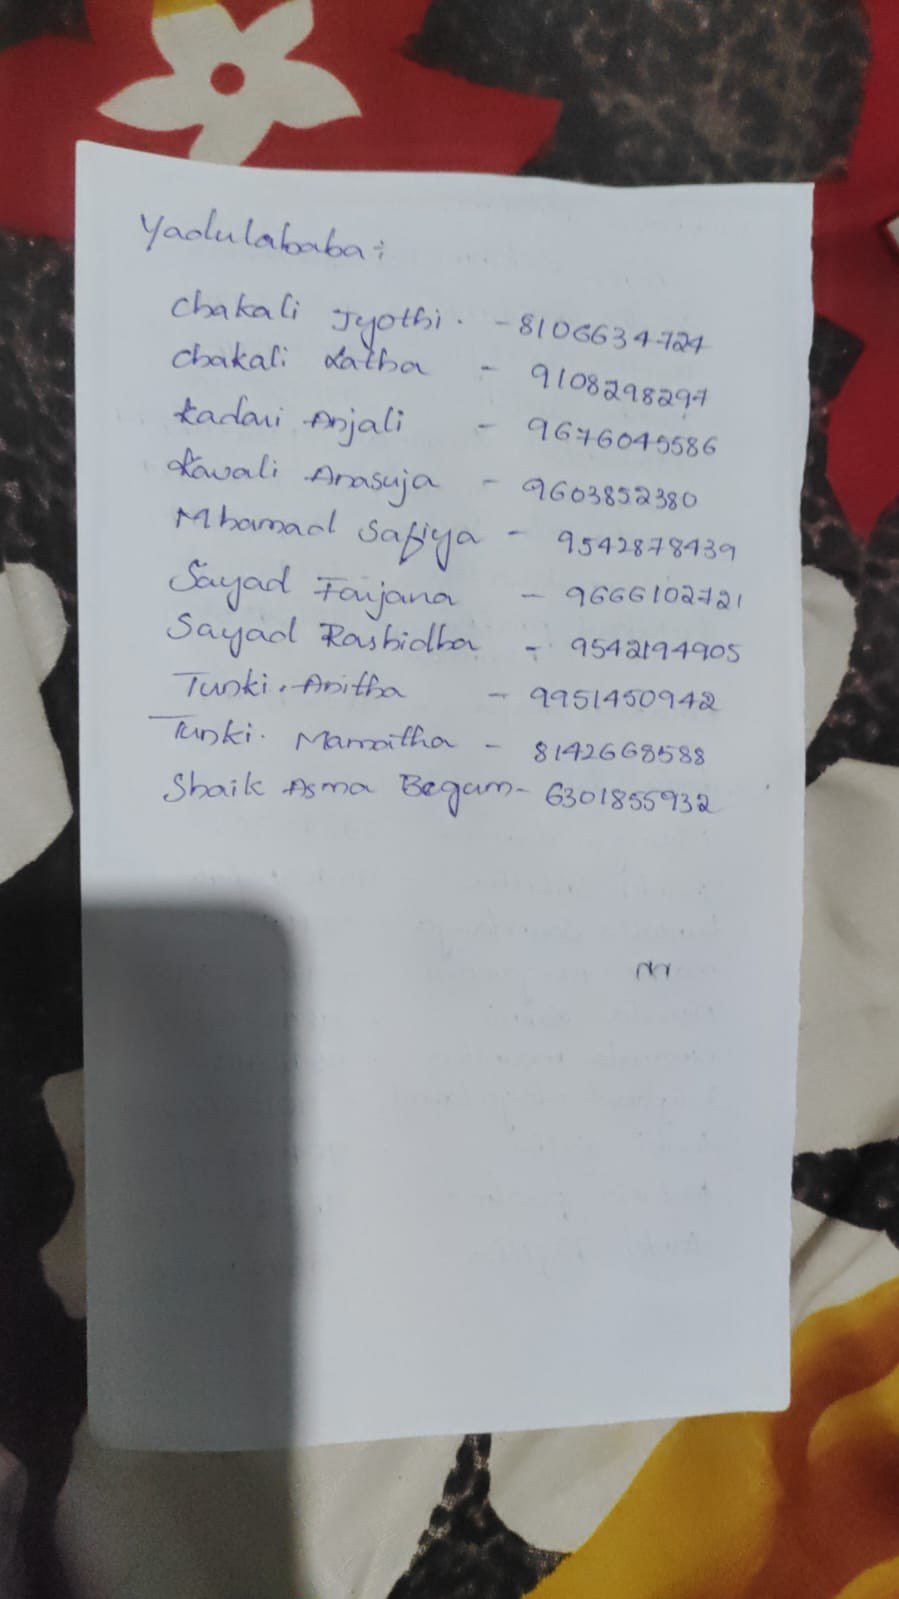 Yadulababa:
Chakali Jyothi. - 8106634724
Chakali Latha - 9108298297
Kadari Anjali - 9676045586
Kavali Anasuja - 9603852380
Mhamad Safiya - 9542878439
Sayad Farjana - 9666102721
Sayad Rashidha - 9542194905
Tunki. Anitha - 9951450942
Tunki. Mamatha - 8142668588
Shaik Asma Begam - 6301855932